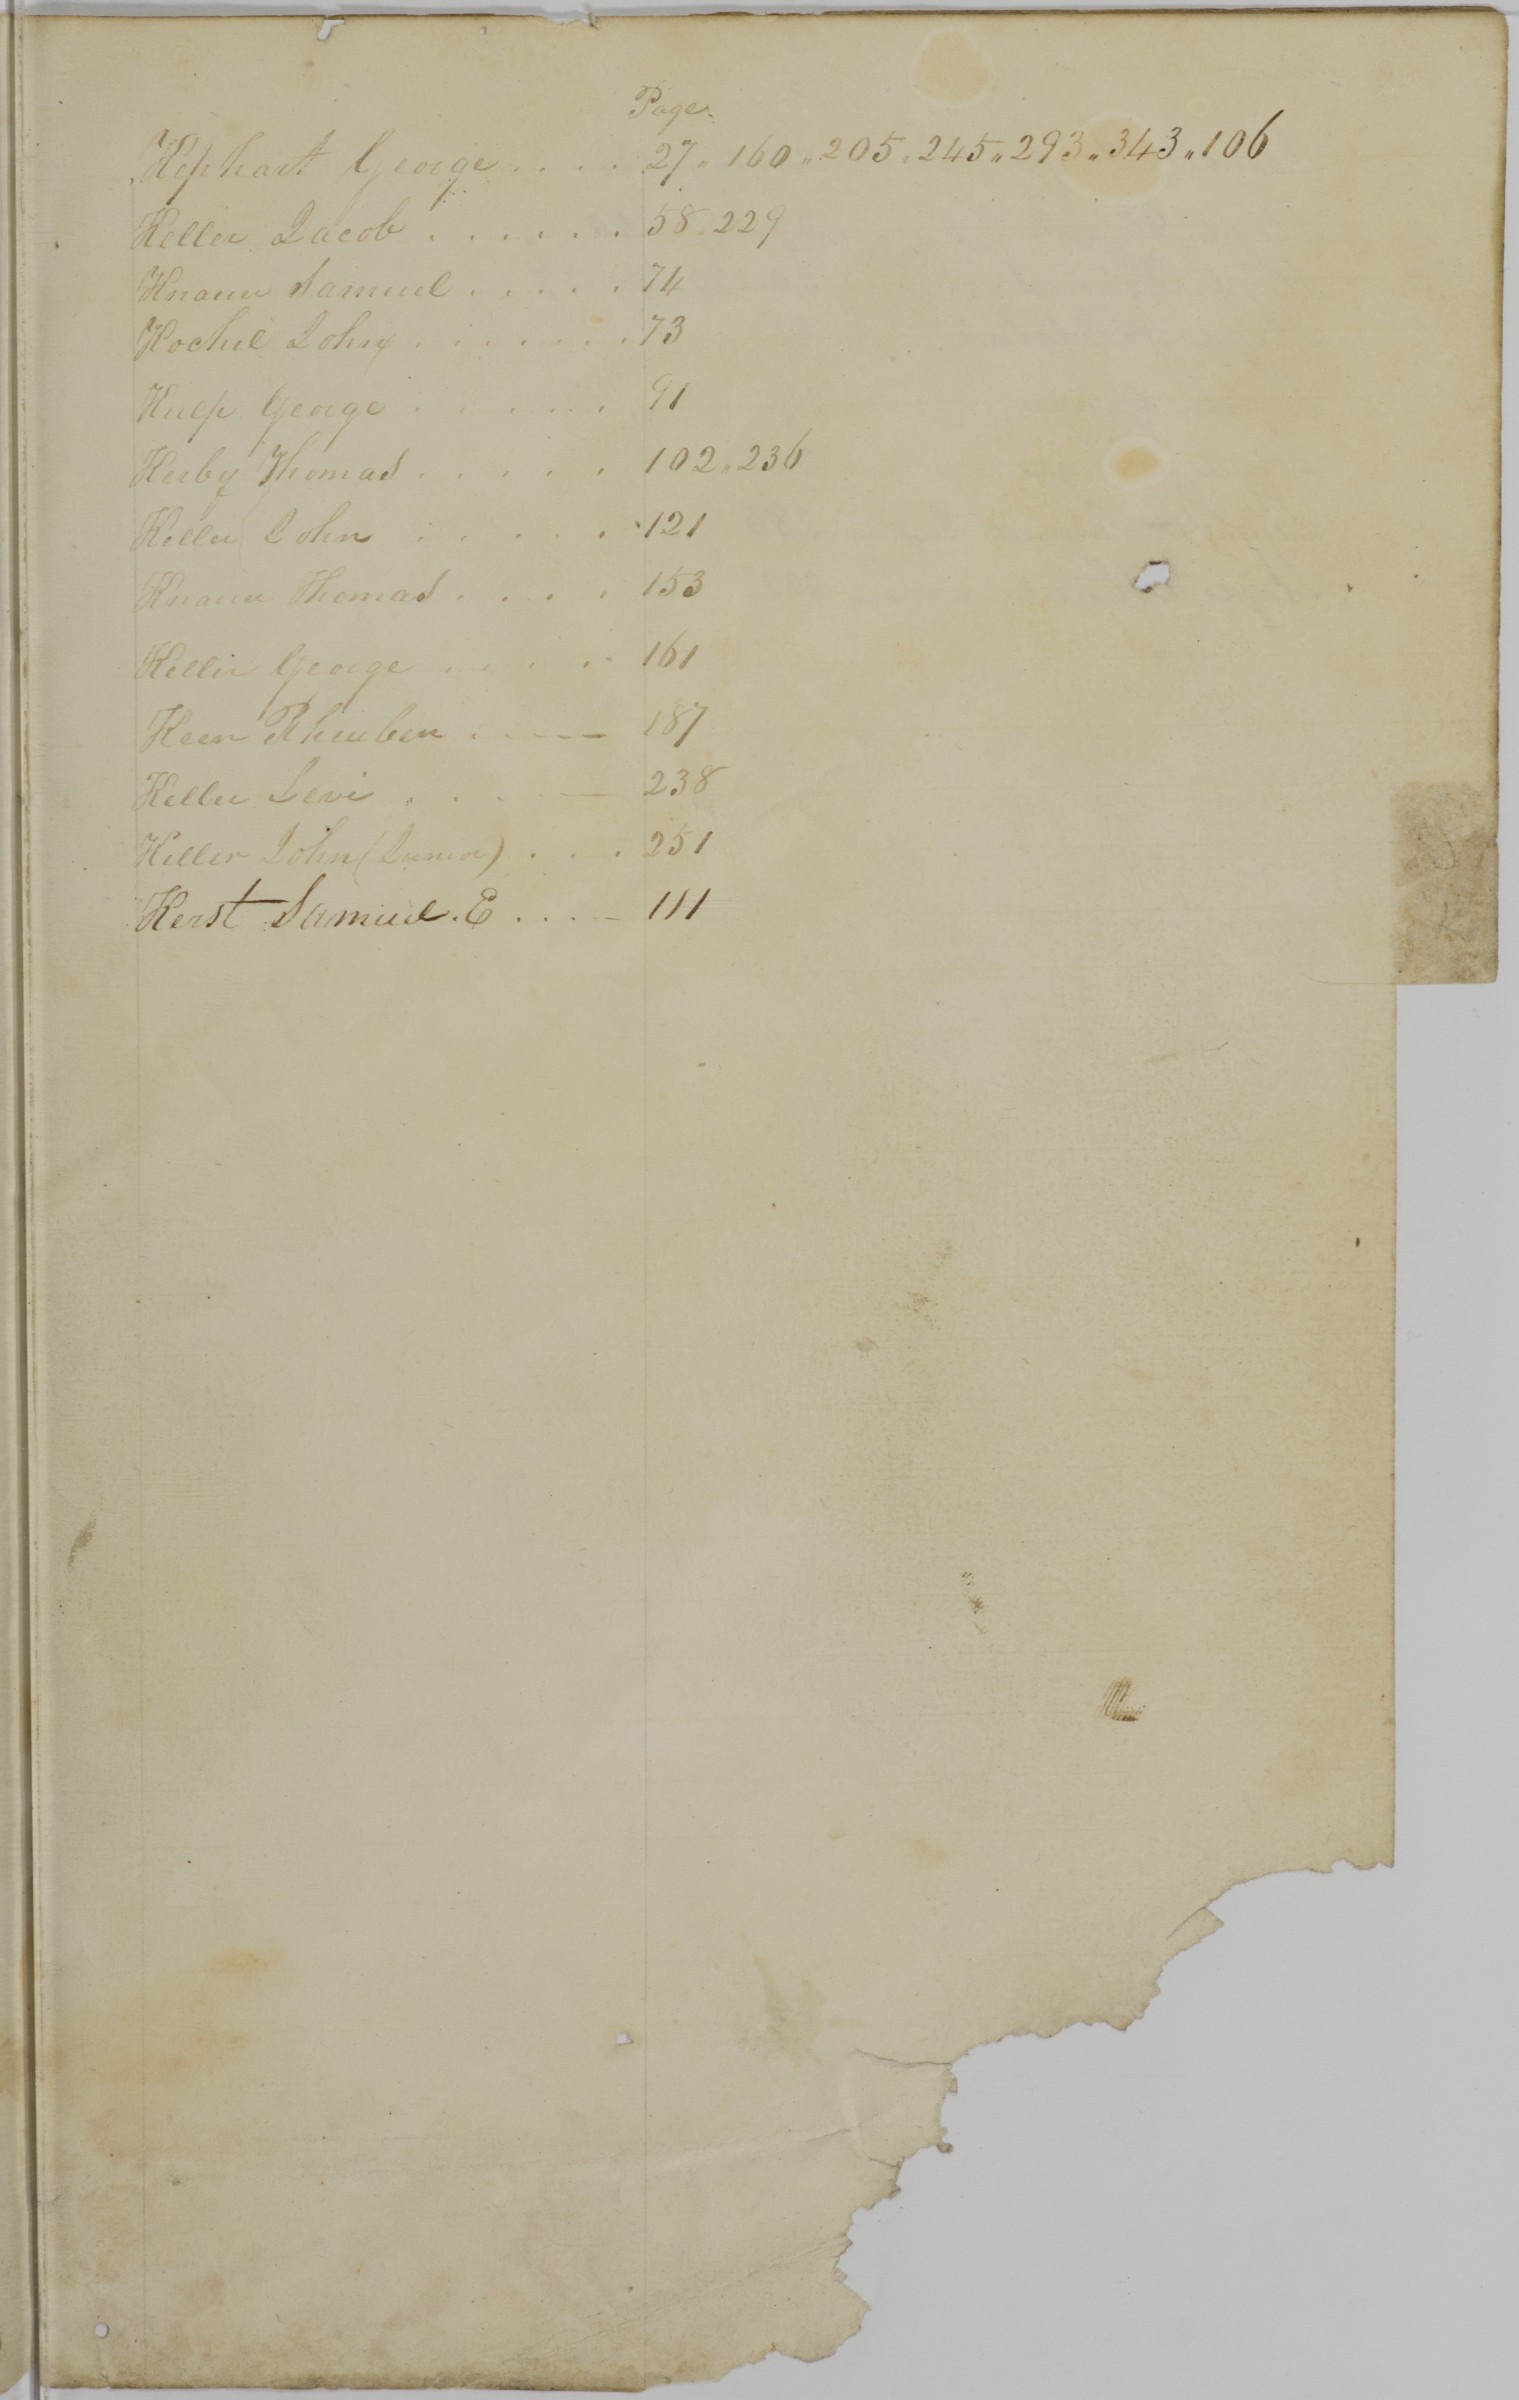 Page.
Kephart George . . . . 27 " 160 " 205 " 245 " 293 " 343 " 106
Keller Jacob . . . . . . 58 " 229
Knauer Samuel . . . . . 74
Kochel John . . . . . . . 73
George . . . . . 91
Kerby Thomas . . . . . 102 " 236
Keller John . . . . . 121
Knauer Thomas . . . . 153
Keller George . . . . . 161
Keen Rheuben . - - - 187
Keller Levi . . . . — 238
Keller John (Junior) . . . 251
Kerst Samuel. E . . . . - 111